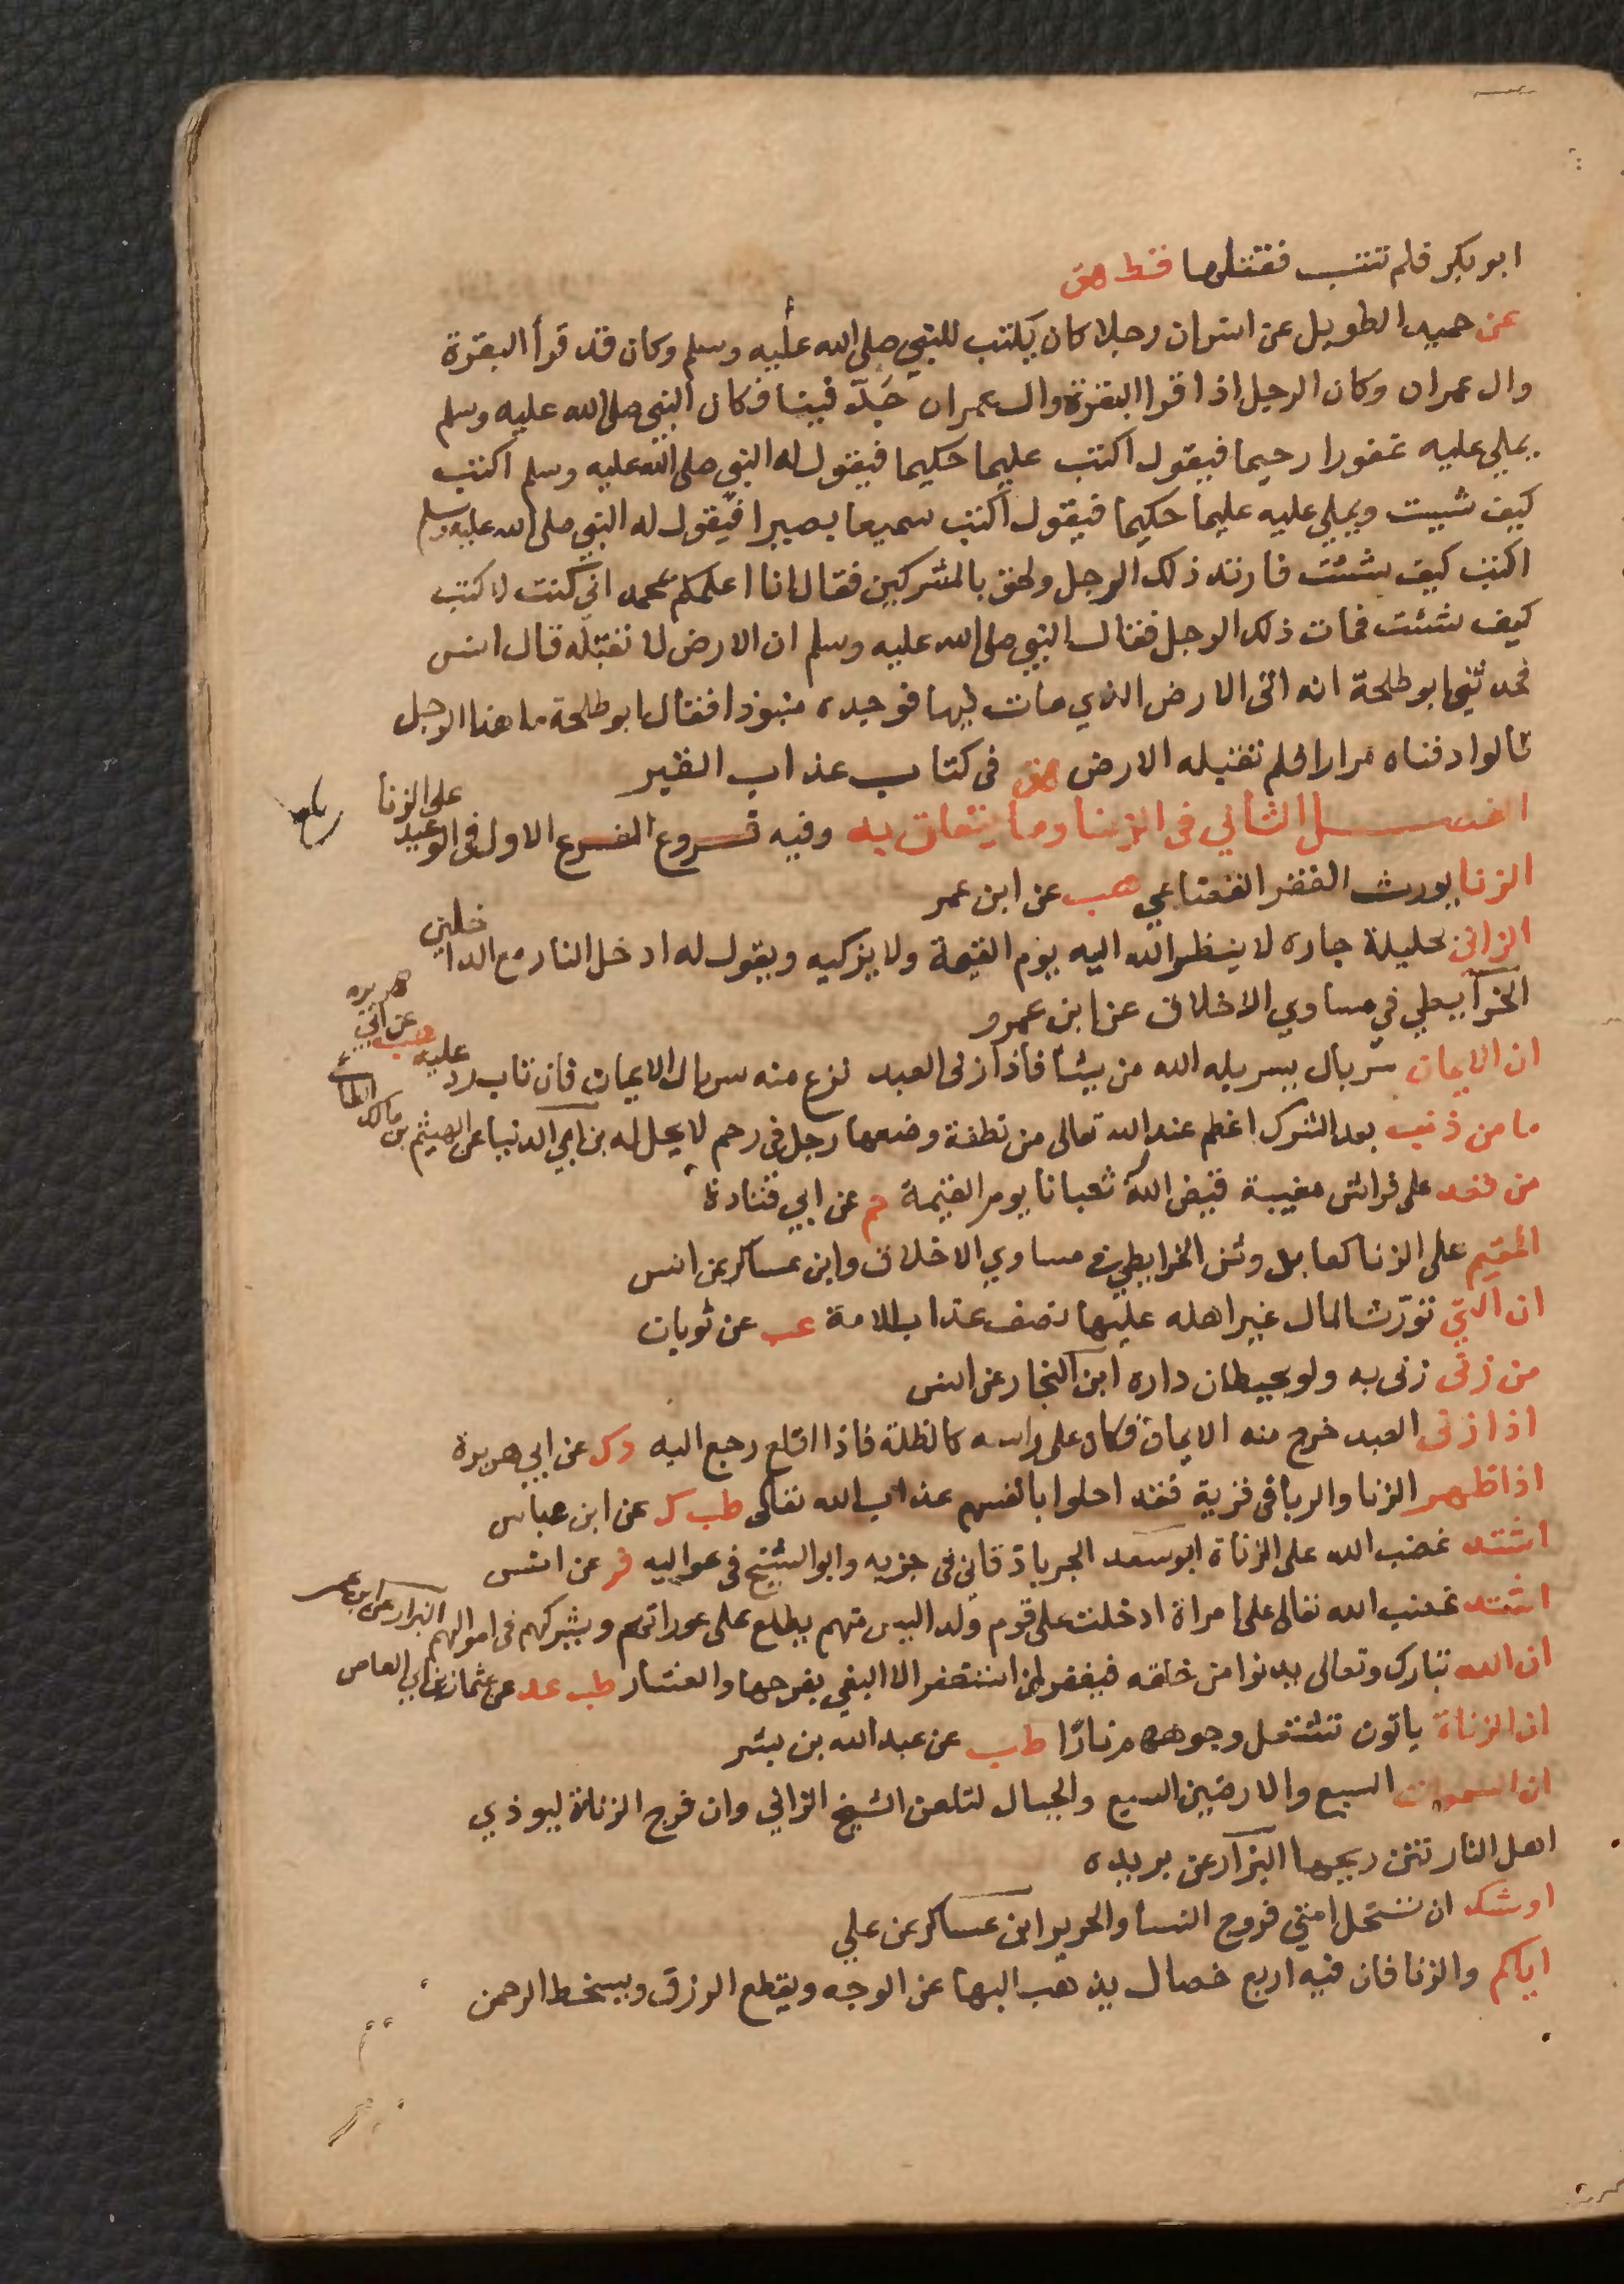 ابو بكر فلم تتب فقتلها قط هق
عن حميد الطويل عن انس ان رجلا كان يكتب للنبي صلى الله عليه وسلم وكان قد قرأ البقرة
وال عمران وكان الرجل اذا قرا البقرة وال عمران جَدّ فينا فكان النبي صلى الله عليه وسلم
يملي عليه غفورا رحيما فيقول اكتب عليما حكيما فيقول له النبي صلى الله عليه وسلم اكتب
كيف شيت ويملي عليه عليما حكيما فيقول اكتب سميعا بصيرا فيقول له النبي صلى الله عليه وسلم
اكتب كيف شئت فارتد ذلك الرجل ولحق بالمشركين فقال انا اعلمكم بمحمد اني كنت لاكتب
كيف شئت فمات ذلك الرجل فقال النبي صلى الله عليه وسلم ان الارض لا تقبله قال انس
فحدثني ابو طلحة انه اتى الارض الذي مات فيها فوجده منبوذا فقال ابو طلحة ما هذا الرجل
قالوا دفناه مرارا فلم تقبله الارض هق في كتاب عذاب القبر
الفصل الثاني في الزنا وما يتعلق به وفيه فروع الفرع الاول في الوعيد على الزنا
الزنا يورث الفقر القضاعي هب عن ابن عمر
الزاني بحليلة جاره لا ينظر الله اليه يوم القيمة ولا يزكيه ويقول له ادخل النار مع الداخلين
الخرايطي في مساوي الاخلاق عن ابن عمرو
ان الايمان سربال يسربله الله من يشأ فاذا زنى العبد نزع منه سربال الايمان فان تاب رد عليه هب عن ابي هريره
ما من ذنب بعد الشرك اعظم عند الله تعالى من نطفة وضعها رجل في رحم لا يحل له بن ابي الدنيا عن الهيثم بن مالك الطائ
من قعد على فراش مغيبة قيض الله ثعبانا يوم القيمة حم عن ابي قتادة
المقيم على الزنا كعابد وثن الخرايطي في مساوي الاخلاق وابن عساكر عن انس
ان التي تورّث المال غير اهله عليها نصف عذاب الامة عب عن ثوبان
من زنى زنى به ولو بحيطان داره ابن النجار عن انس
اذا زنى العبد خرج منه الايمان فكان على راسه كالظلة فاذا اقلع رجع اليه د ك عن ابي هريرة
اذا ظهر الزنا والربا في قرية فقد احلوا بانفسهم عذاب الله تعالى طب ك عن ابن عباس
اشتد غضب الله على الزناة ابو سعد الجرباذقاني في جزيه وابو الشيخ في عواليه فر عن انس
اشتد غضب الله تعالى على امراة ادخلت على قوم ولد اليس منهم يطلع على عوراتهم ويشركهم في اموالهم البزار عن ابن عمر
ان الله تبارك وتعالى يدنوا من خلقه فيغفر لمن استغفر الا البغي بفرجها والعشار طب عد عن عثمان بن ابي العاص
ان الزناة ياتون تشتعل وجوههم نارًا طب عن عبد الله بن بشر
ان السموات السبع والارضين السبع والجبال لتلعن الشيخ الزاني وان فرج الزناة ليوذي
اهل النار نتن ريحها البزار عن بريده
اوشك ان تستحل امتي فروج النسأ والحرير ابن عساكر عن علي
اياكم والزنا فان فيه اربع خصال يذهب البها عن الوجه ويقطع الرزق ويسخط الرحمن